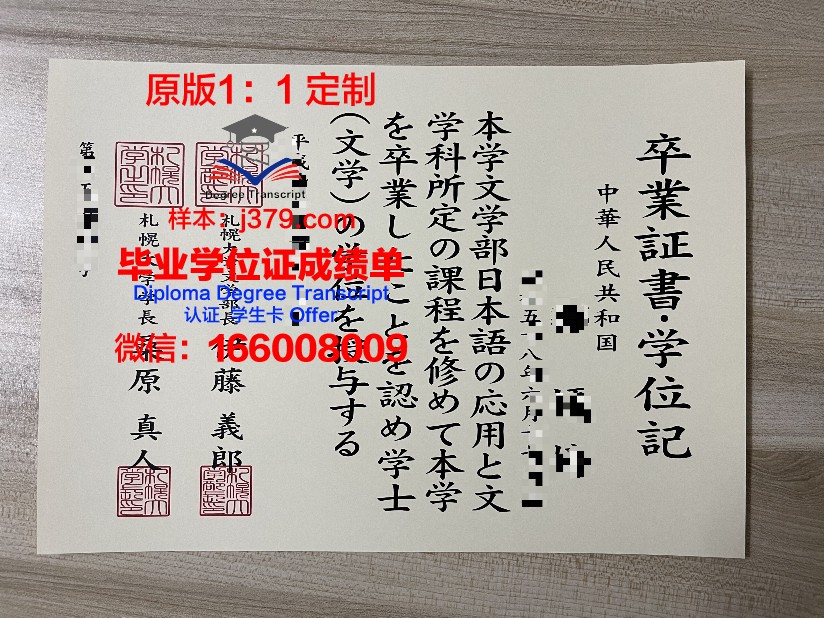 卒業証書・学位記
中華人民共和国
本学文学部日本語の応用と文
学科所定の課程を修めて本学
を卒業したことを認め学士
(文学)の学位を授与する
札幌大学文学部長 伊藤 義郎
札幌大学学長 桑原 真人
原版1：1 定制
Degree Transcript
样本：j379.com
毕业学位证成绩单
Diploma Degree Transcript
认证 学生卡 Offer
微信：166008009